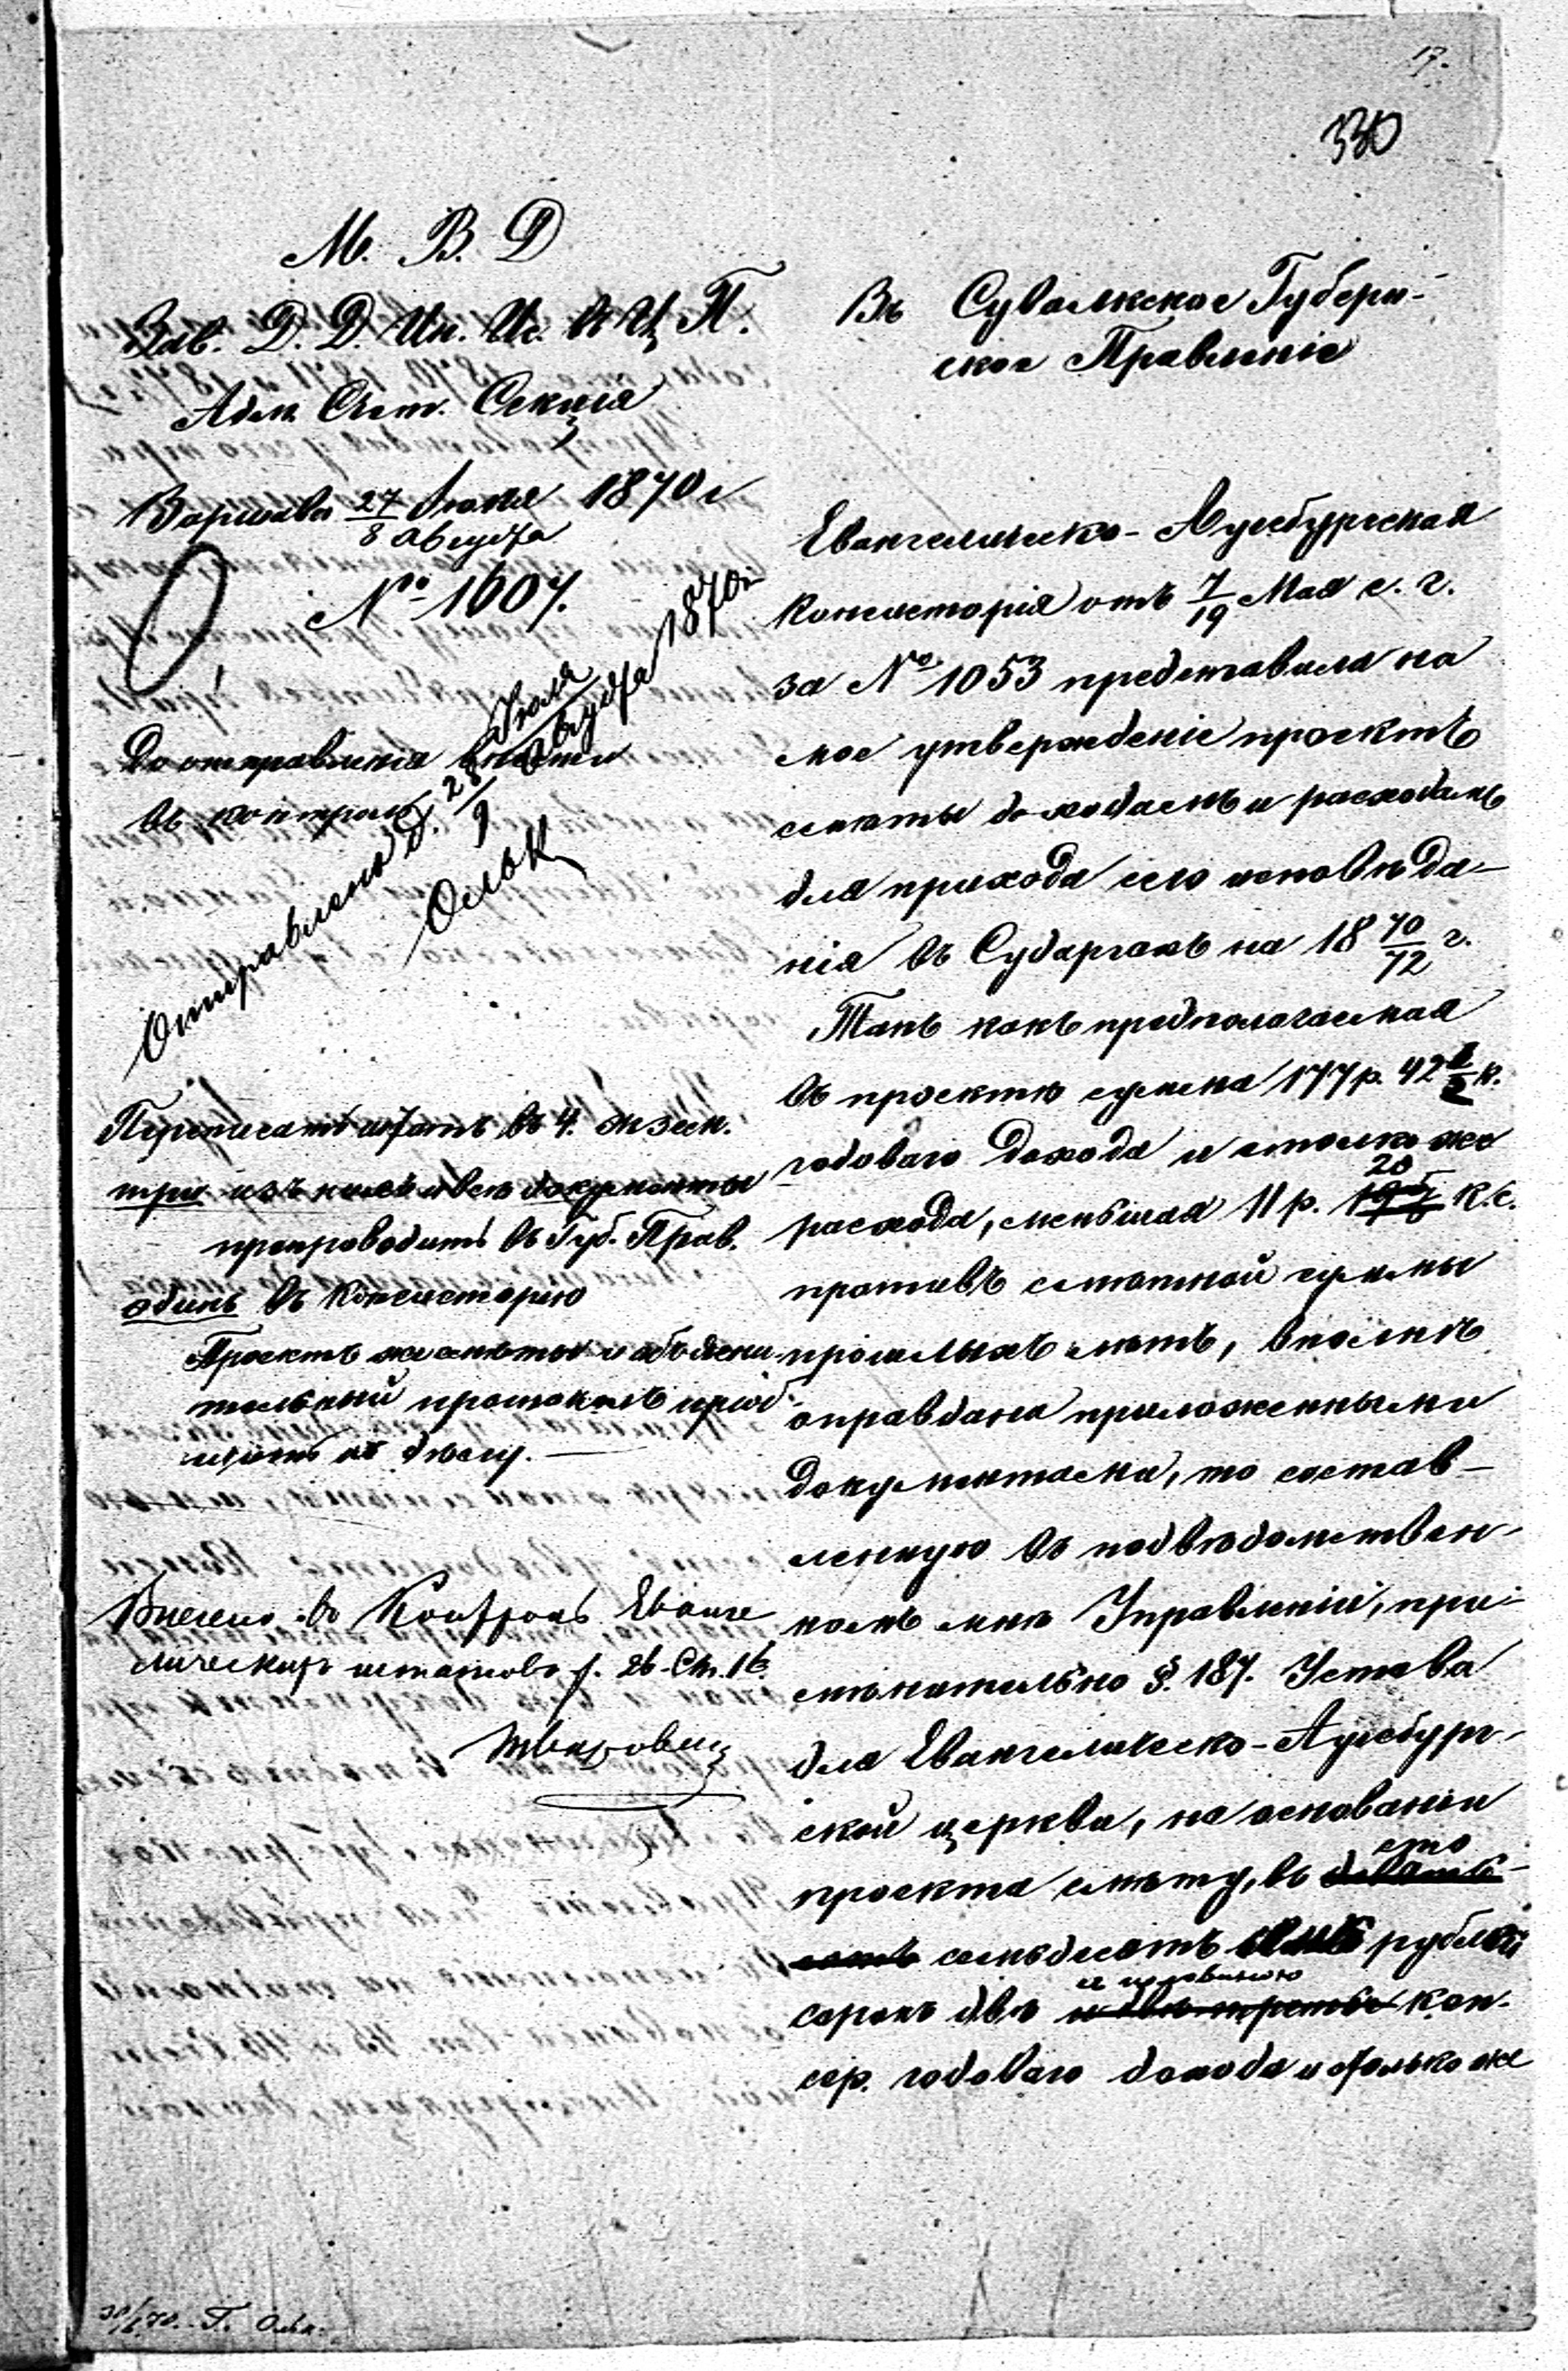 17.
330
М. В. Д
Зав. Д. Д. Ин. Ис. въ Ц. П.
Адм. Счет. Секція
Варшава 27 Іюля / 8 Августа 1870 г
№ 1607.
До отправленія внести
въ контроль
Отправлено д. 28 Іюля / 9 Августа 1870 г.
Ольк
Переписать штатъ въ 4. экзем.
три изъ нихъ и всѣ документы
препроводить въ Губ. Прав.
одинъ въ Консисторію
Проектъ же смѣты и объясни-
тельный протоколъ пріоб-
щить къ дѣлу. —
Внесено въ Контроль Еванге
лическихъ штатовъ f. 26. Ст. 16.
30/6 70. Г. Ольк.
Въ Сувалкское Губерн-
ское Правленіе
Евангелическо-Аугсбургская
Консисторія отъ 7/19 Мая с. г.
за № 1053 представила на
мое утвержденіе проектъ
смѣты доходамъ и расходамъ
для прихода сего исповѣда-
нія въ Сударгахъ на 18 70/72 г.
Такъ какъ предполагаемая
въ проектѣ сумма 177 р. 42 1/2 к.
годоваго дохода и столько же
расхода, меньшая 11 р. 20 к. с.
противъ смѣтной суммы
прошлыхъ лѣтъ, вполнѣ
оправдана приложенными
документами, то состав-
ленную въ подвѣдомствен-
номъ мнѣ Управленіи, при-
мѣнительно §. 187. Устава
для Евангелическо-Аугсбург-
ской церкви, на основаніи
проекта смѣту, въ сто
семьдесятъ семь рублей
сорокъ двѣ съ половиною коп.
сер. годоваго дохода и столько же